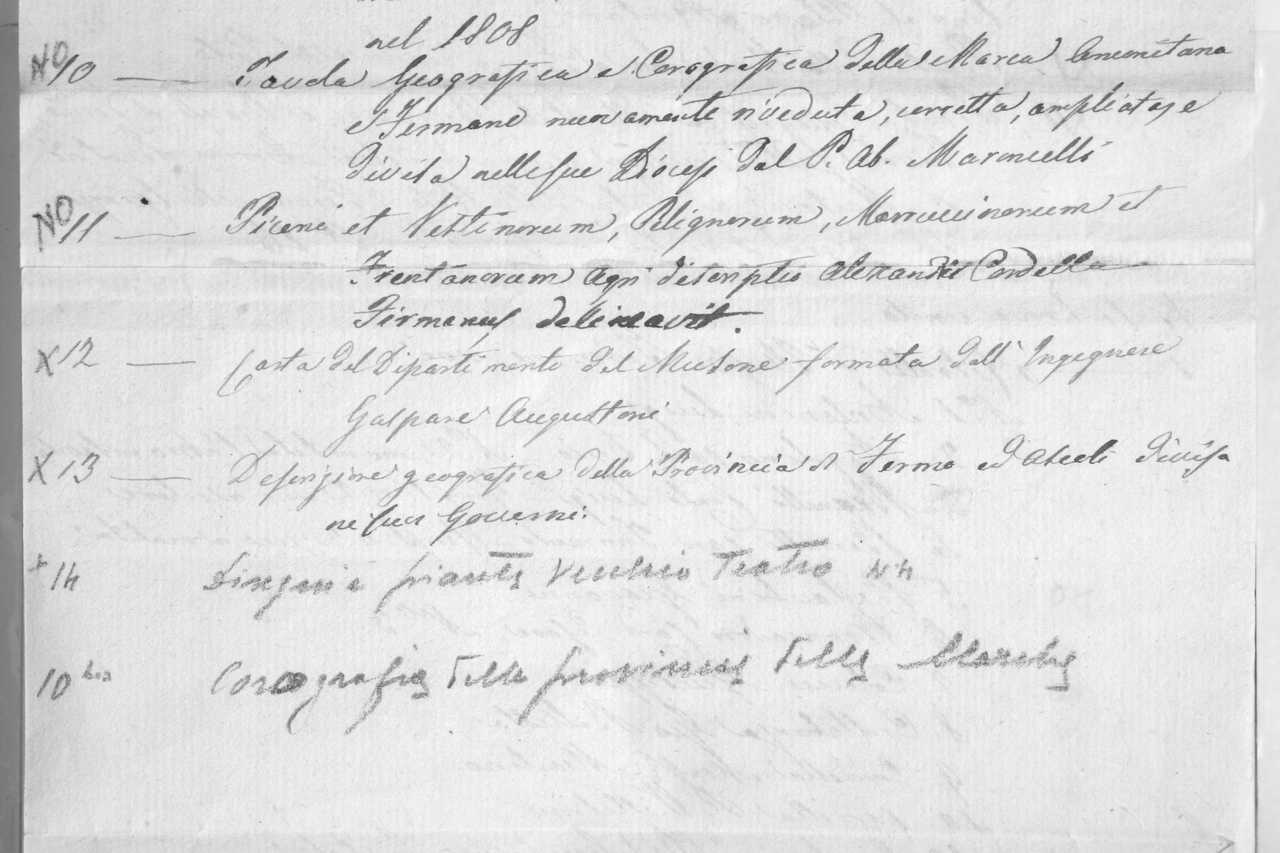 nel 1808
NO 10 — Tavola Geografica e Corografica della Marca Anconetana
e Fermane nuovamente riveduta, corretta, ampliata, e
divisa nelle sue Diocesi dal P. Ab. Maroncelli
NO 11 — Piceni et Vestinorum, Pelignorum, Marrucinorum et
Frentanorum Agri descriptio Alexander Cordella
Firmanus delineavit.
X 12 — Carta del Dipartimento del Musone formata dall' Ingegnere
Gaspare Augustoni
X 13 — Descrizione geografica della Provincia di Fermo ed Ascoli divisa
ne suoi Governi.
+ 14 Disegni e piante Vecchio Teatro
10 bis Corografia delle provincie delle Marche